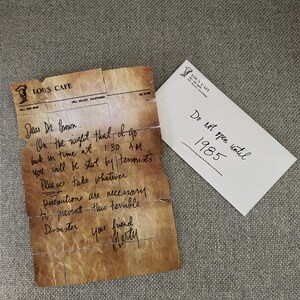 LOU'S CAFE
HILL VALLEY, CALIFORNIA
Dear Dr. Brown,
On the night that I go
back in time at 1:30 AM
you will be shot by terrorists
Please take whatever
precautions are necessary
to prevent this terrible
Disaster.
your friend
Marty
LOU'S CAFE
Do not open until
1985